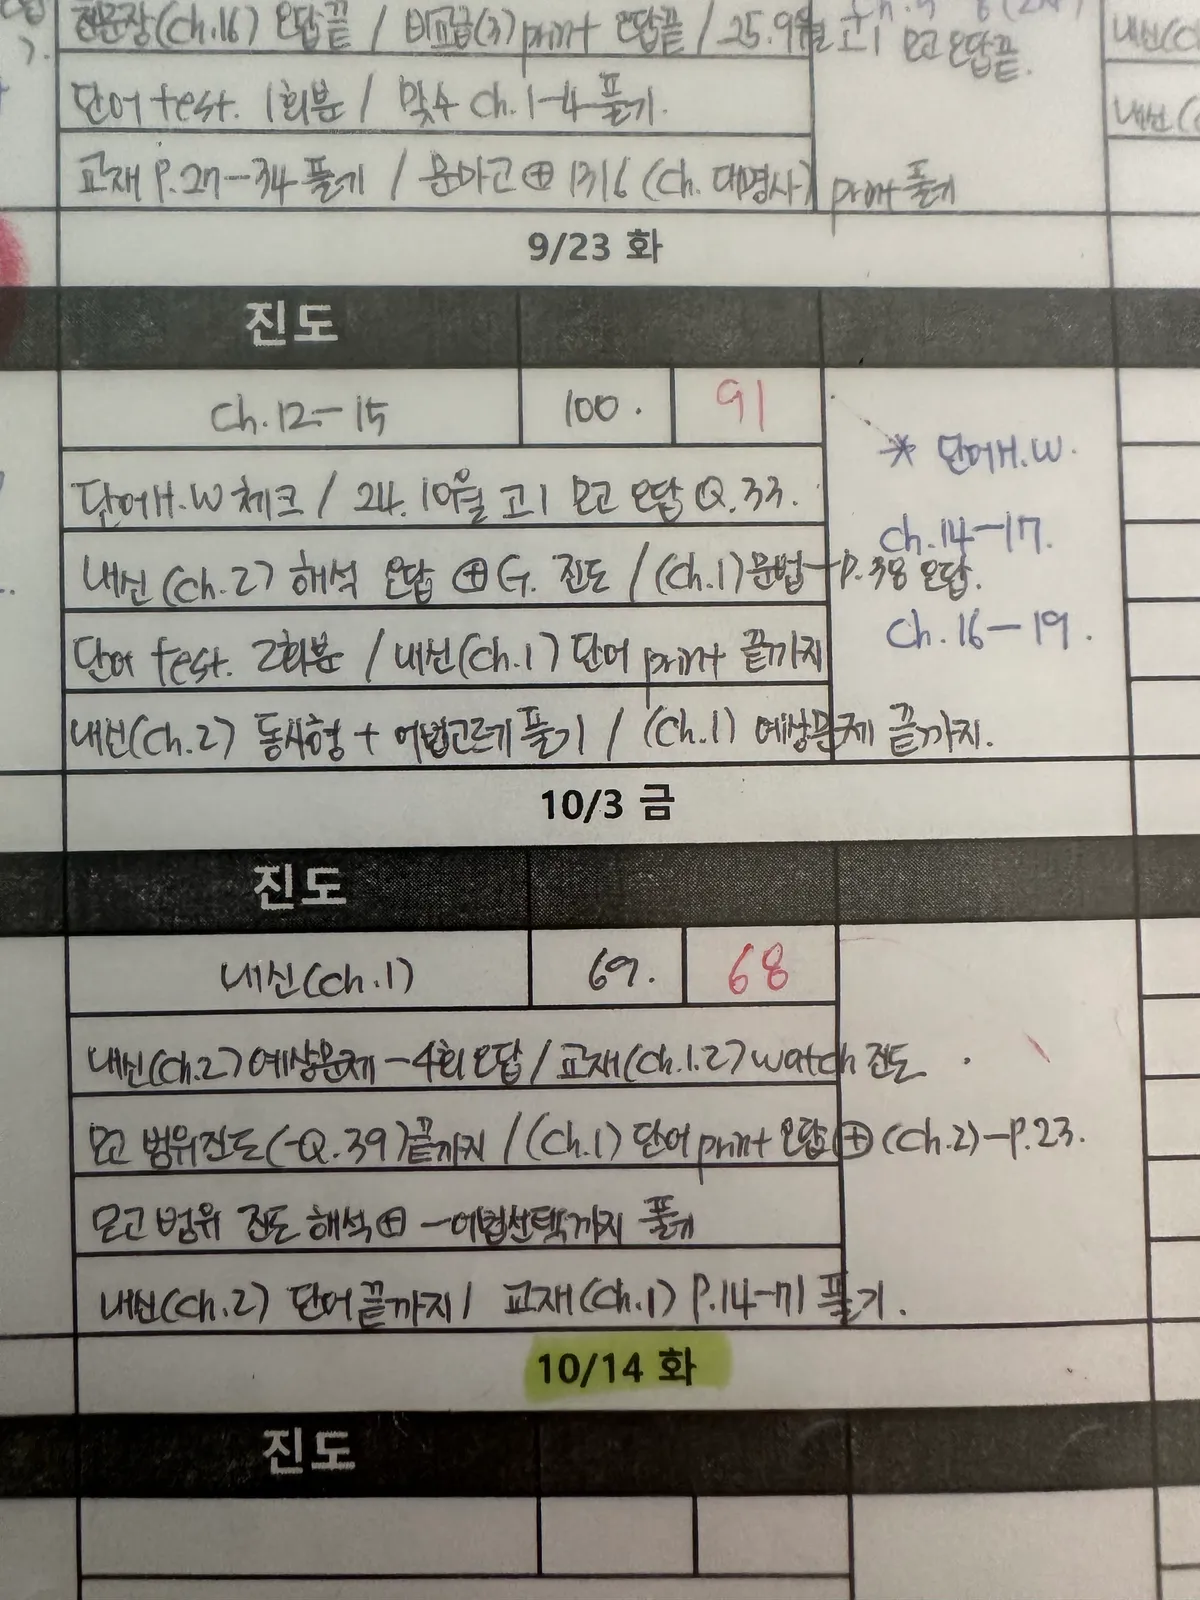 현문장(Ch.16) 오답끝 / 비교급(3) print 오답끝 / 25. 9월 고1 모고 오답끝.
내신(Ch
단어 test. 1회분 / 맞수 Ch. 1-4 풀기.
내신(
교재 P.27-34 풀기 / 문마고 ⊕ 1316 (Ch. 대명사) print 풀기
9/23 화
진도
Ch.12-15 100. 91
* 단어H.W.
단어H.W 체크 / 24. 10월 고1 모고 오답 Q.33.
Ch.14-17.
내신(Ch.2) 해석 오답 ⊕ G. 진도 / (Ch.1) 문법-P.38 오답.
Ch.16-19.
단어 test. 2회분 / 내신(Ch.1) 단어 print 끝까지
내신(Ch.2) 동사형 + 어법고르기 풀기 / (Ch.1) 예상문제 끝까지.
10/3 금
진도
내신(Ch.1) 69. 68
내신(Ch.2) 예상문제-4회 오답 / 교재(Ch.1.2) watch 진도
모고 범위진도(-Q.39)끝까지 / (Ch.1) 단어 print 오답 ⊕ (Ch.2)-P.23.
모고 범위 진도 해석 ⊕ -어법선택까지 풀기
내신(Ch.2) 단어끝까지 / 교재(Ch.1) P.14-71 풀기.
10/14 화
진도